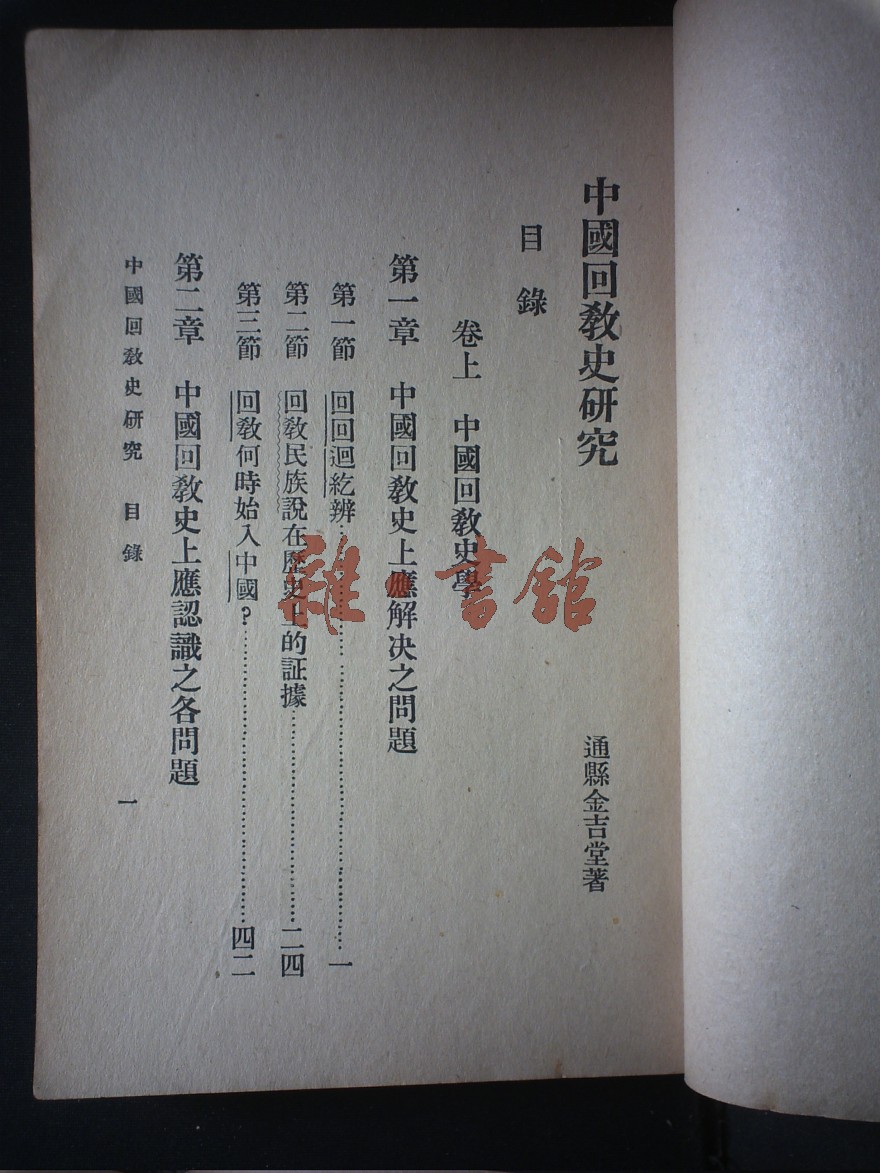 中國回敎史研究
通縣金吉堂著
目錄
卷上 中國回敎史學
第一章 中國回敎史上應解决之問題
第一節 回回迴紇辨…………………………一
第二節 回敎民族說在歷史上的証據……………二四
第三節 回敎何時始入中國?……………………四二
第二章 中國回敎史上應認識之各問題
中國回敎史研究 目錄 一
雜·書館